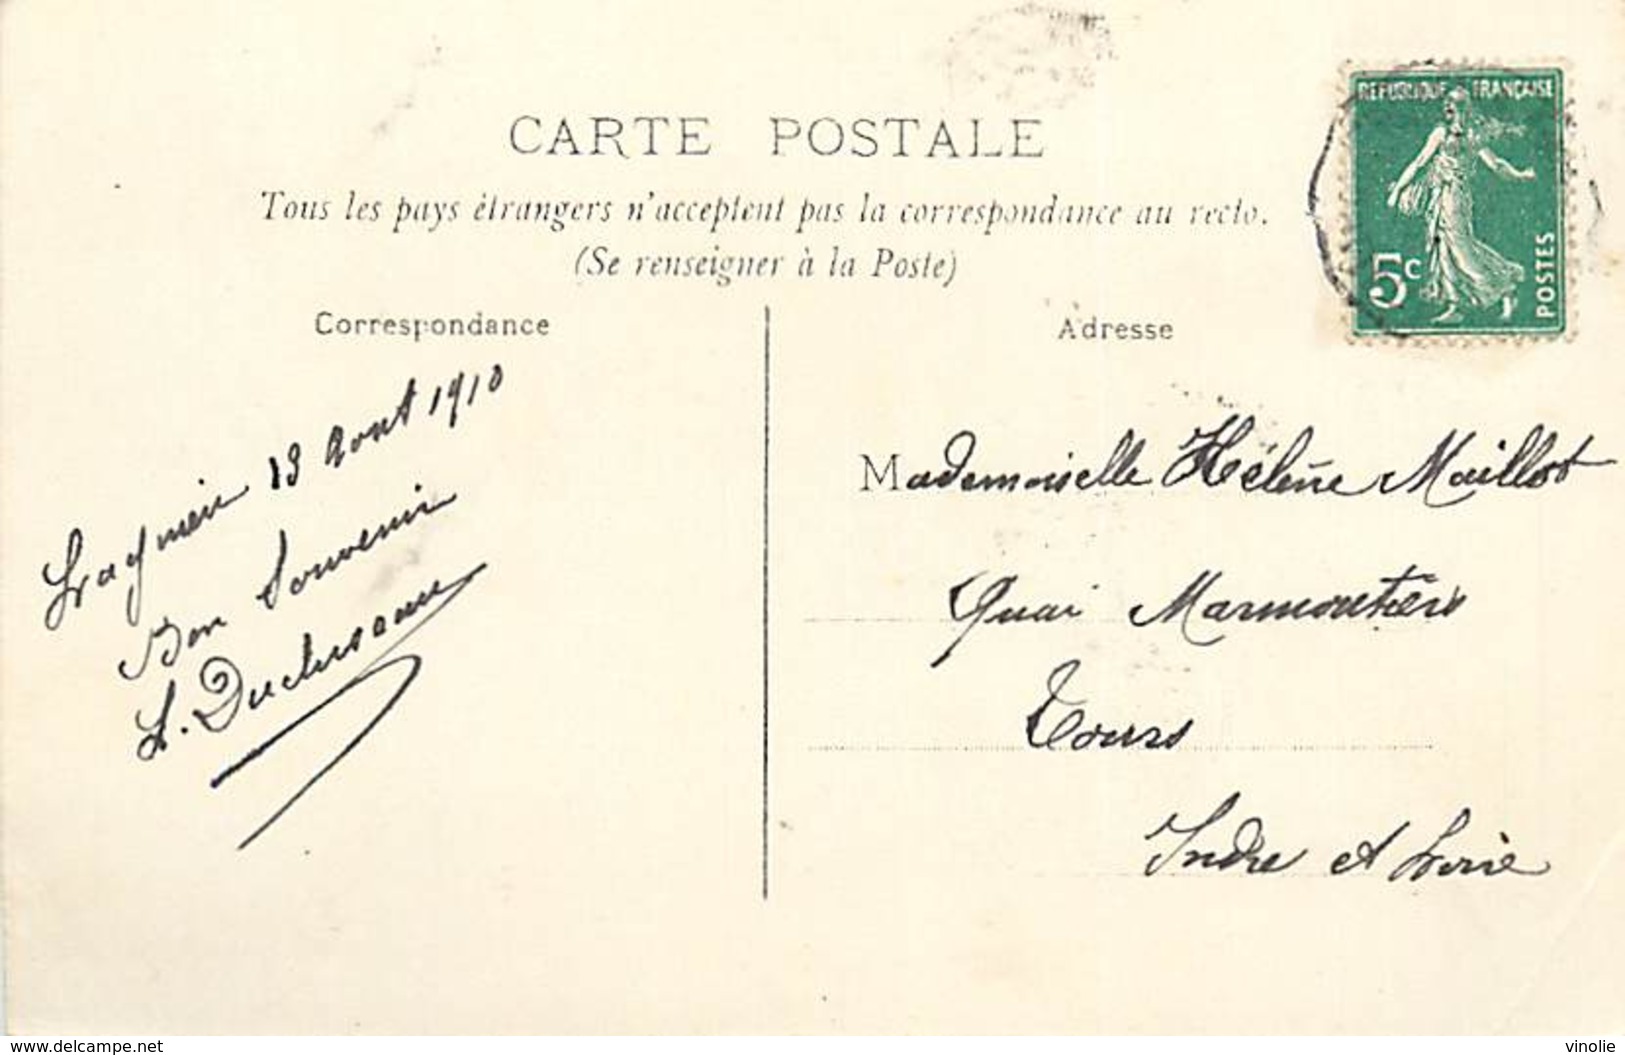 CARTE POSTALE
Tous les pays étrangers n'acceptent pas la correspondance au recto.
(Se renseigner à la Poste)
Correspondance
Adresse
REPUBLIQUE FRANÇAISE
5c
POSTES
Lagnieu 13 Aout 1910
Bon Souvenir
L. Ducluseau
Mademoiselle Hélène Maillot
Quai Marmoutiers
Tours
Indre et Loire
www.delcampe.net
vinolie